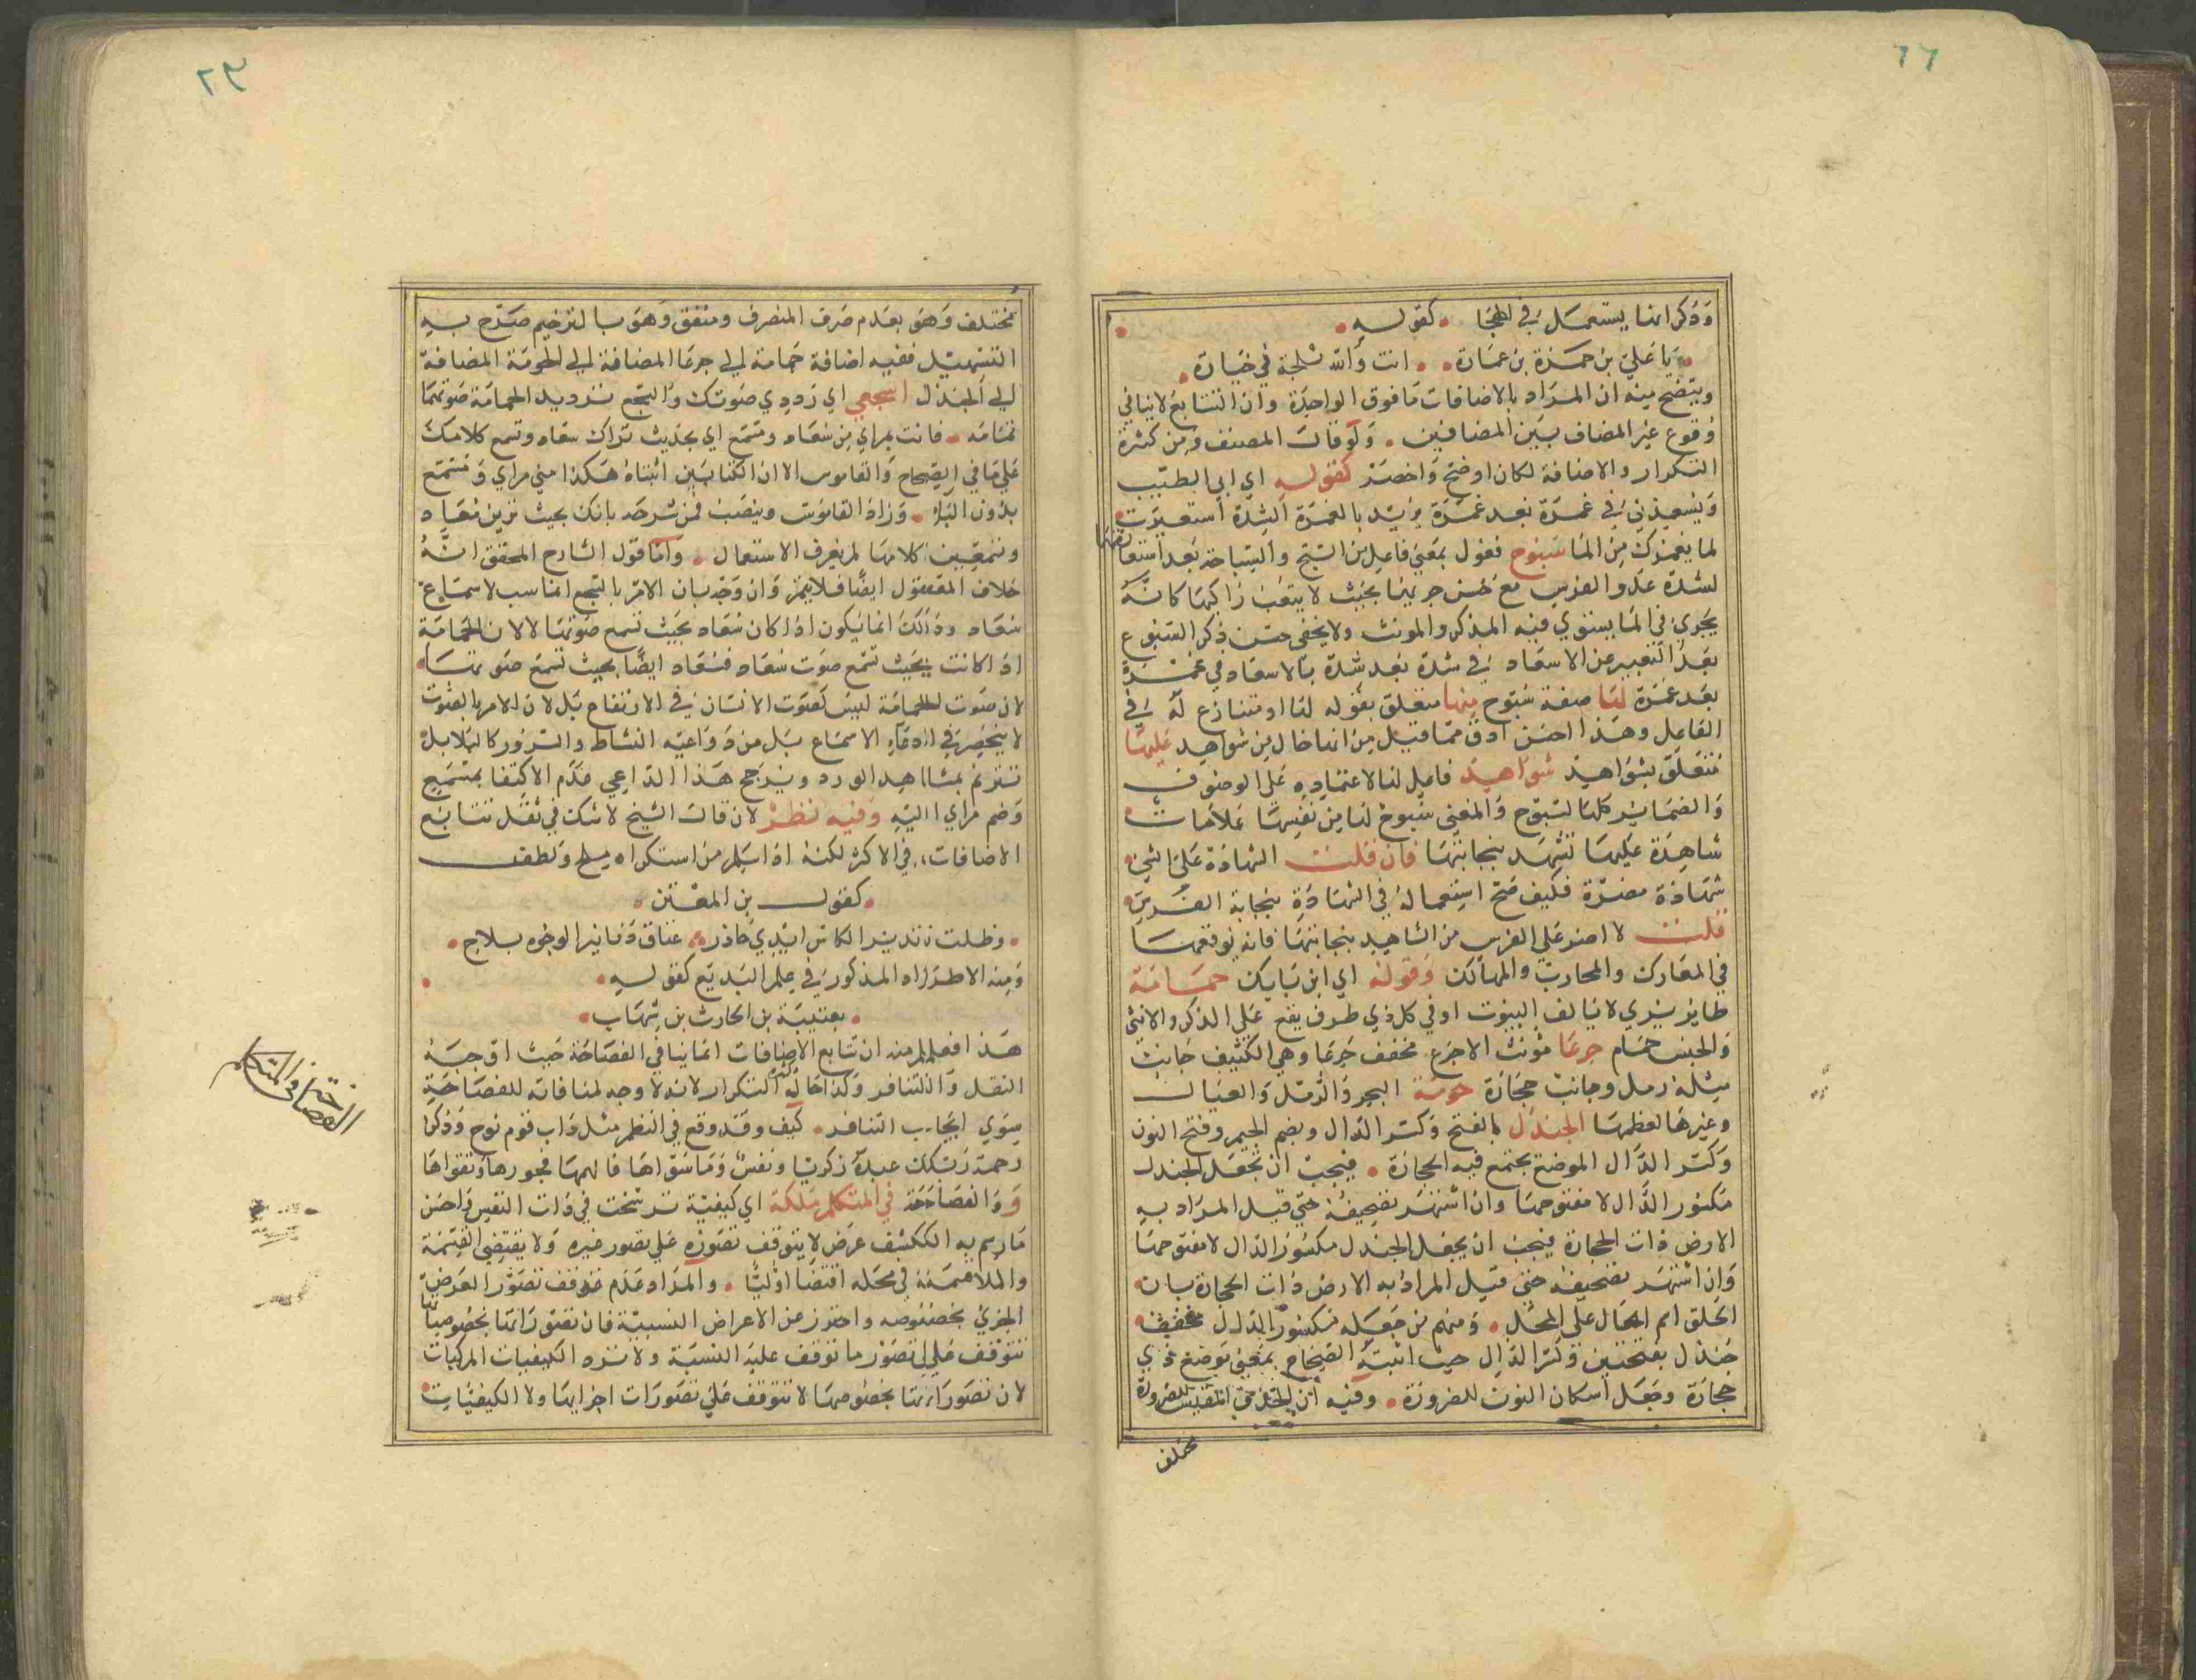 ٦٦
وذكر انما يستعمل في الهجا كقوله
يا علي بن حمزة بن عمارة انت والله ثلجة في خيارة
ويتضح منه ان المراد بالاضافات ما فوق الواحدة وان التتابع لاينافي
وقوع غير المضاف بين المضافين ولو قال المصنف ومن كثرة
التكرار والاضافة لكان اوضح واخصر كقوله اي ابي الطيب
وتسعدني في غمرة بعد غمرة يريد بالغمرة الشدة استعيرت
لما يغمرك من الما سبوح فعول بمعني فاعل من السبح والسباحة بعد استعا
لشدة عدو الفرس مع حسن جريها بحيث لا يتعب راكبها كانه
يجري في الما يستوي فيه المذكر والمونث ولايخفي حسن ذكر السبوح
بعد التعبير عن الاسعاد في شدة بعد شدة بالاسعاد في غمرة
بعد غمرة لها صفة سبوح منها متعلق بقوله لها او متنازع له في
الفاعل وهذا احسن ادق مما قيل من انها حال من شواهد عليها
متعلق بشواهد شواهد فاعل لها لاعتماده على الموصوف
والضماير كلها لسبوح والمعني سبوح لها من نفسها علامات
شاهدة عليها تشهد بنجابتها فان قلت الشهادة على الشي
شهادة مضرة فكيف صح استعماله في الشهادة بنجابة الفرس
قلت لا اضر على الفرس من الشاهد بنجابتها فانه يوقعها
في المعارك والمحارب والمهالك وقوله اي ابن بابك حمامة
طاير بري لا يالف البيوت او في كل ذي طوق يقع علي الذكر والانثي
والجنس حمام جرعا مونث الاجرع مخفف جرعا وهي الكثيف جانب
مثله رمل وجانب حجارة حومة البحر والرمل والقتال
وغيرها لعظمها الجندل بالفتح وكسر الدال وبضم الجيم وفتح النون
وكسر الدال الموضع يجتمع فيه الحجارة فيجب ان يجعل الجندل
مكسور الدال لا مفتوحها وان اشتهر تصحيفه حتي قيل المراد به
الارض ذات الحجارة فيجب ان يجعل الجندل مكسور الدال لا مفتوحها
وان اشتهر تصحيفه حتي قيل المراد به الارض ذات الحجارة بان
اطلق اسم الحال على المحل ومنهم من جعله مكسور الدال مخفف
جندل بفتحتين وكسر الدال حيث اثبته الصحاح بمعني موضع ذي
حجارة وجعل اسكان النون للضرورة وفيه ان
مختلف
٢٣
مختلف وهو بعدم صرف المنصرف ومتفق وهو بالترخيم صرح به
التسهيل ففيه اضافة حمامة الي جرعا المضافة الي الحومة المضافة
الي الجندل اسجعي اي رددي صوتك والسجع ترديد الحمامة صوتها
تمامه فانت بمراي من سعاد ومسمع اي بحيث تراك سعاد وتسمع كلامك
علي ما في الصحاح والقاموس الا ان الكتابين اثبتاه هكذا مني مراي ومسمع
بدون الباء وزاد القاموس وينصب فمن شرحه بانك بحيث ترين سعاد
وتسمعين كلامها لم يعرف الاستعمال واما قول الشارح المحقق انه
خلاف المعقول ايضا فلايتم وان وجه بان الامر بالسجع انما يناسب لاستماع
سعاد وذلك انما يكون اذا كان سعاد بحيث تسمع صوتها لا لان الحمامة
اذا كانت بحيث تسمع صوت سعاد فسعاد ايضا بحيث تسمع صوتها
لان صوت الحمامة ليس كصوت الانسان في الارتفاع بل لان الامر بالصوت
لا ينحصر في ادعاء الاسماع بل من دواعيه النشاط والسرور كالبلابل
تترنم بمشاهد الورد ويرجح هذا الداعي عدم الاكتفا بمسمع
وضم مراي اليه وفيه نظر لان قال الشيخ لا شك في ثقل تتابع
الاضافات في الاكثر لكنه اذا سلم من استكراه ملح ولطف
كقول بن المعتز
وظلت تدير الكاس ايدي جاذر عتاق دنانير الوجوه ملاح
ومنه الاطراد المذكور في علم البديع كقوله
بعتيبة بن الحارث بن شهاب
هذا افعلم منه ان تتابع الاضافات انما ينافي الفصاحة حيث اوجب
الثقل والتنافر وكذا حال كثرة التكرار لانه لا وجه لمنافاته للفصاحة
سوي ايجاب التنافر كيف وقد وقع في النظم مثل داب قوم نوح وذكر
رحمة ربك عبده زكريا ونفس وما سواها فالهمها فجورها وتقواها
و والفصاحة في المتكلم ملكة اي كيفية ترسخت في ذات النفس واحسن
ما رسم به الكيف عرض لا يتوقف تصوره على تصور غيره ولا يقتضي القسمة
واللاقسمة في محله اقتضا اوليا والمراد عدم توقف تصور العرض
الجزئي بخصوصه واحترز عن الاعراض النسبية فان تصوراتها بخصوصياتها
تتوقف علي تصور ما توقف عليه النسبة ولا ترد الكيفيات المركبات
لان تصوراتها بخصوصها لا تتوقف علي تصورات اجزايها ولا الكيفيات
الفصاحة في المتكلم